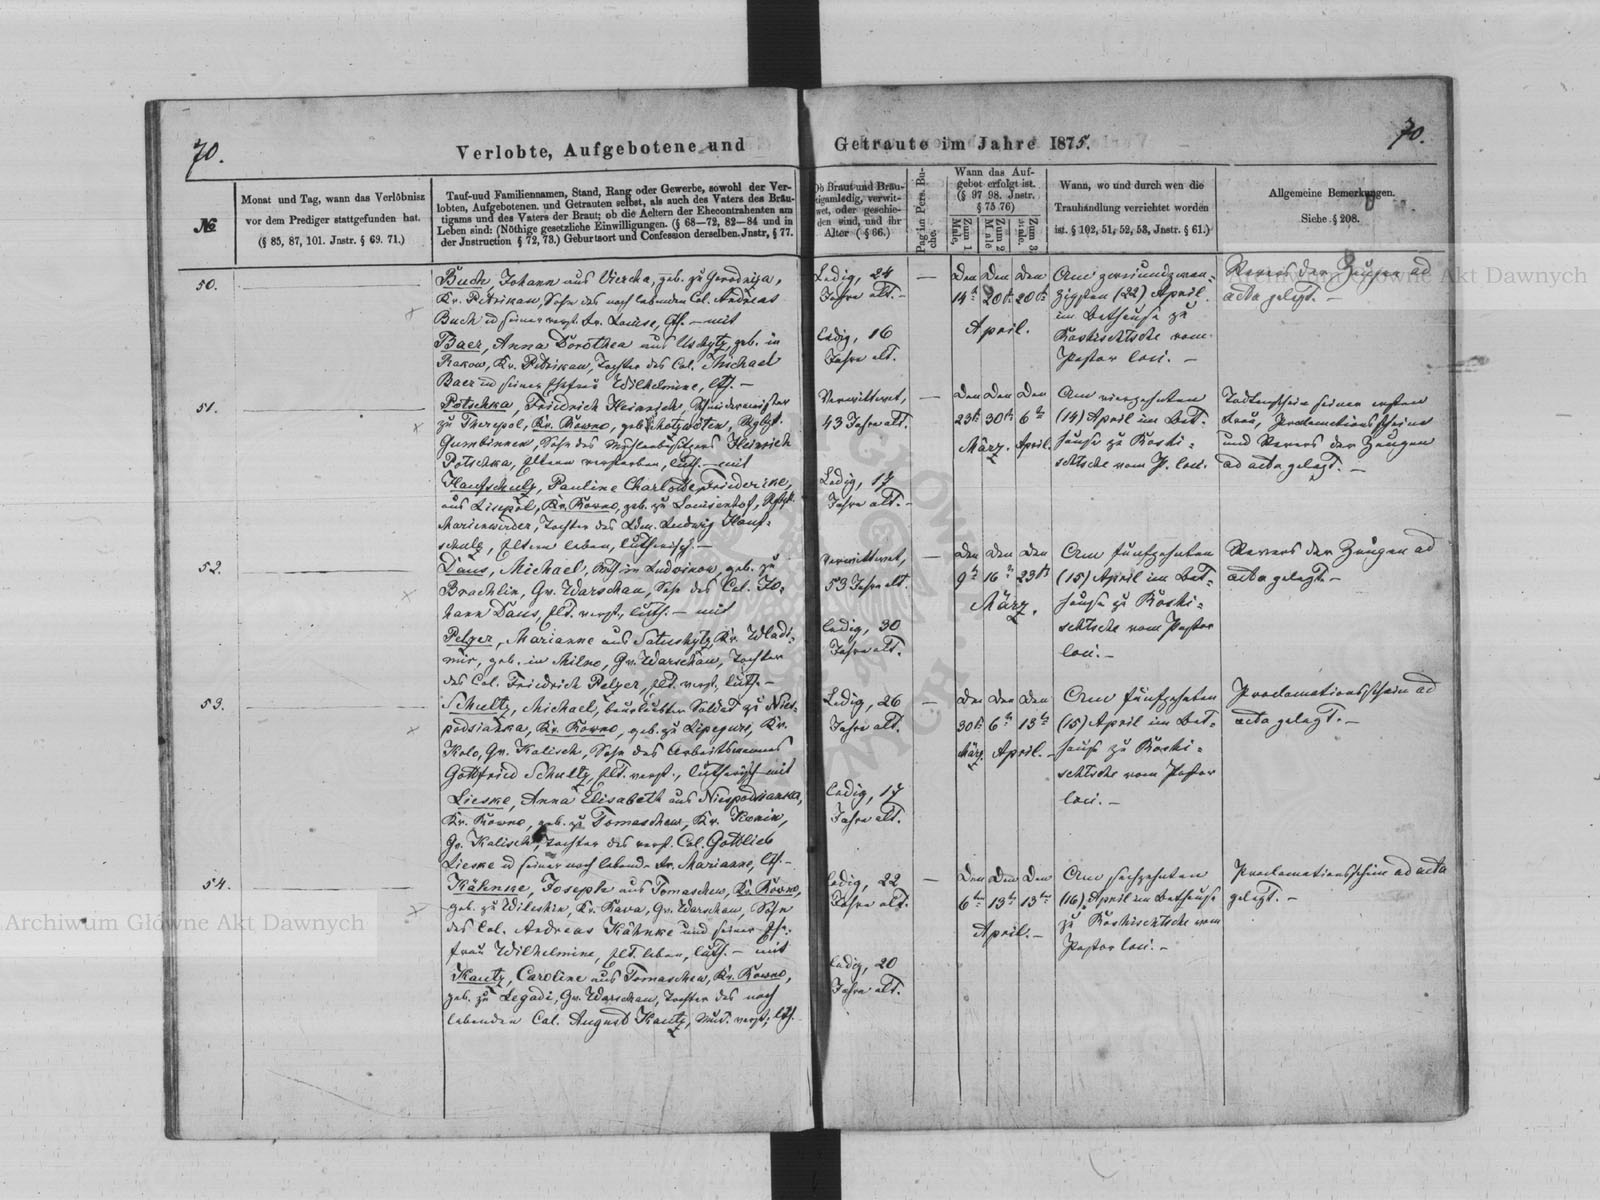 70.
Verlobte, Aufgebotene und
Getraute im Jahre 1875.
70.
№
Monat und Tag, wann das Verlöbniss
vor dem Prediger stattgefunden hat.
(§ 85, 87, 101. Jnstr. § 69. 71.)
Tauf-und Familiennamen, Stand, Rang oder Gewerbe, sowohl der Ver-
lobten, Aufgebotenen. und Getrauten selbst, als auch des Vaters des Bräu-
tigams und des Vaters der Braut; ob die Aeltern der Ehecontrahenten am
Leben sind: (Nöthige gesetzliche Einwilligungen. (§ 68—72, 82—84 und in
der Jnstruction § 72, 73.) Geburtsort und Confession derselben. Jnstr, § 77.
Ob Braut und Bräu-
tigam ledig, verwit-
wet, oder geschie-
den sind, und ihr
Alter (§ 66.)
Pag in Pers. Bu-
che.
Wann das Auf-
gebot erfolgt ist.
(§ 97 98. Jnstr.
§ 75 76)
Zum 1
Male,
Zum 2
Male
Zum 3
Male.
Wann, wo und durch wen die
Trauhandlung verrichtet worden
ist. § 102, 51, 52, 53, Jnstr. § 61.)
Allgemeine Bemerkungen.
Siehe § 208.
50.
Buch, Johann aus geb. zu
Kr. Petrikau, Sohn des noch lebenden Col. Andreas
Buch und seiner verst. Fr. Louise, lth. — mit
Baer, Anna Dorothea aus geb. in
Rakow, Kr. Petrikau, Tochter des Col. Michael
Baer und seiner Ehefrau Wilhelmine, lth. —
Ledig, 24
Jahre alt. —
ledig, 16
Jahre alt.
—
Den Den Den
April.
Am zweiundzwan-
zigsten (22) April
im Bethause zu
Roschischtsche vom
Pastor loci. —
Revers der Zeugen ad
acta gelegt. —
51.
Potschka, Friedrich Heinrich, Schneidermeister
zu Kr. Kowno, geb. Rgbz.
Gumbinnen, Sohn des Mühlenbesitzers Heinrich
Potschka, Eltern verstorben, luth. — mit
Haufschulz, Pauline Charlotte Friedericke,
aus Kr. Kowno, geb. zu Louisenhof, Rgbzk.
Marienwerder, Tochter des Ldm. Ludwig Hauf-
schulz, Eltern leben, lutherisch. —
Verwittwet,
43 Jahre alt.
Ledig, 17
Jahre alt. —
—
Den Den Den
23t 30t 6t
März. April.
Am vierzehnten
(14) April im Bet-
hause zu Roschi-
schtsche vom P. loci.
Todtenschein seiner ersten
Frau, Proclamationsscheine
und Revers der Zeugen
ad acta gelegt. —
52.
Daus, Michael, geb. zu
Gv. Warschau, Sohn des Col. Jo-
hann Daus, Elt. verst., luth. — mit
Pelzer, Marianne aus Kr. Wladi-
mir, geb. in Milno, Gv. Warschau, Tochter
des Col. Friedrich Pelzer, Elt. verst., luth. —
Verwittwet,
53 Jahre alt.
ledig, 30
Jahre alt.
—
Den Den Den
9t 16t 23t
März.
Am fünfzehnten
(15) April im Bet-
hause zu Roschi-
schtsche vom Pastor
loci. —
Revers der Zeugen ad
acta gelegt. —
53.
Schultz, Michael, beurlaubter Soldat zu Nies-
podzianka, Kr. Kowno, geb. zu Kr.
Kolo, Gv. Kalisch, Sohn des Arbeitsmannes
Gottfried Schultz, Elt. verst., lutherisch mit
Lieske, Anna Elisabeth aus Niespodzianka,
Kr. Kowno, geb. zu Tomaschew, Kr. Konin,
Gv. Kalisch, Tochter des verst. Col. Gottlieb
Lieske und seiner noch lebend. Fr. Marianne, lth. —
Ledig, 26
Jahre alt.
ledig, 17
Jahre alt.
—
Den Den Den
30t 6t 13t
März. April. —
Am fünfzehnten
(15) April im Bet-
hause zu Roschi-
schtsche vom Pastor
loci. —
Proclamationsschein ad
acta gelegt. —
54.
Kähnke, Joseph aus Tomaschew, Kr. Kowno,
geb. zu Kr. Rava, Gv. Warschau, Sohn
des Col. Andreas Kähnke und seiner Ehe-
frau Wilhelmine, Elt. leben, luth. — mit
Kautz, Caroline aus Tomaschew, Kr. Kowno,
geb. zu Gv. Warschau, Tochter des noch
lebenden Col. August Kautz, Mutt. verst., lth.
ledig, 22
Jahre alt.
ledig, 20
Jahre alt.
—
Den Den Den
6t 13t 13t
April. —
Am sechzehnten
(16) April im Bethause
zu Roschischtsche vom
Pastor loci. —
Proclamationsschein ad acta
gelegt. —
Archiwum Główne Akt Dawnych
Archiwum Główne Akt Dawnych